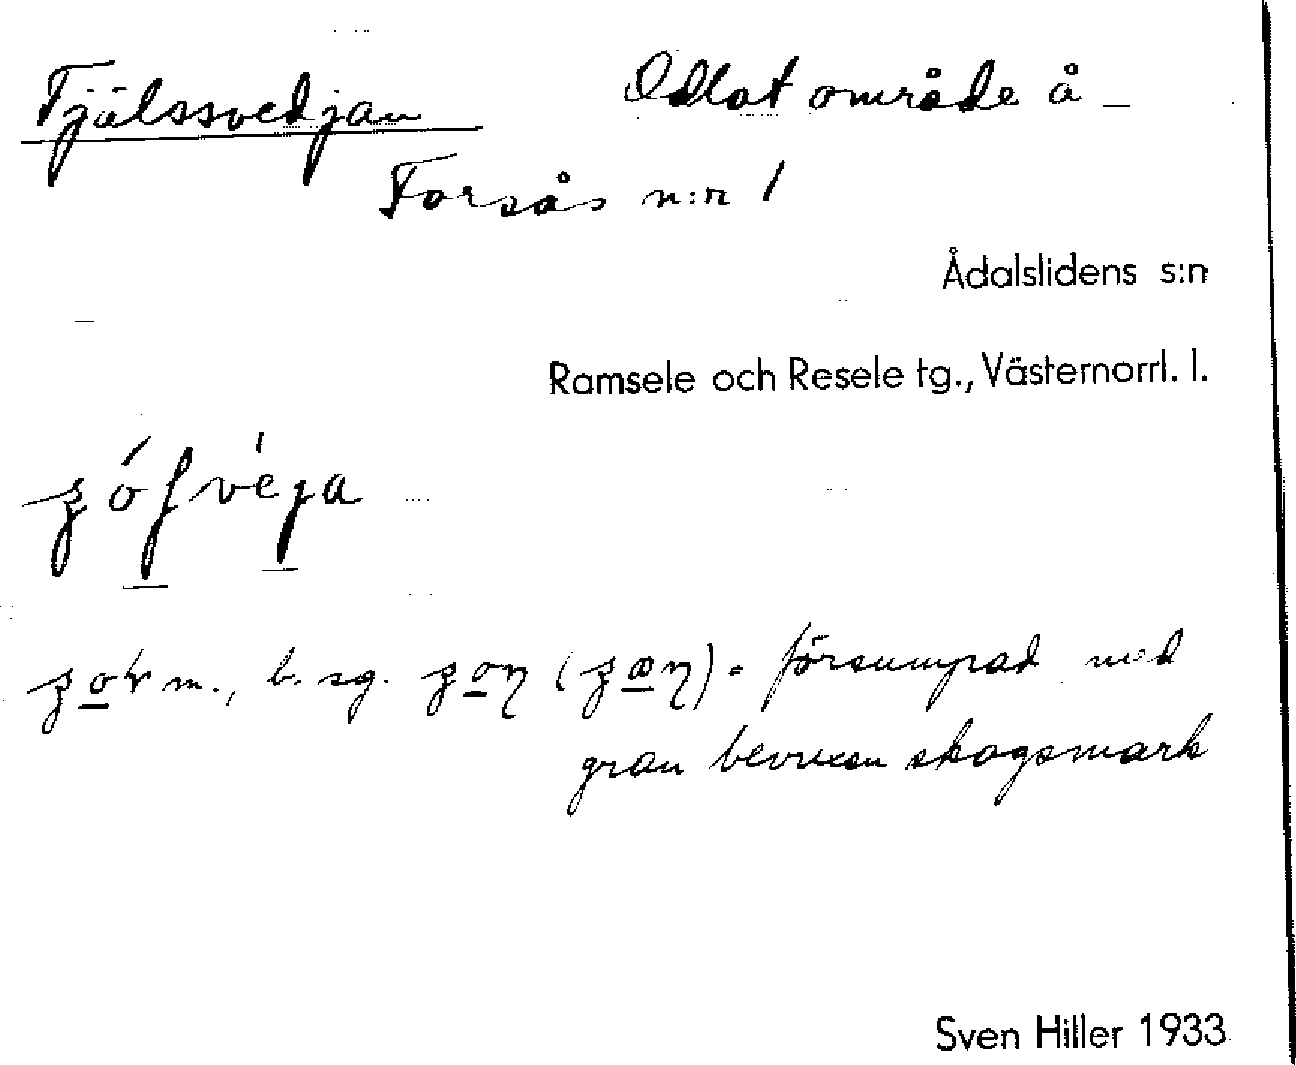 Tjälssvedjan Odlat område å
Forsås n:r 1
Ådalslidens s:n
Ramsele och Resele tg., Västernorrl. l.
m., b. sg. = försumpad med
gran bevuxen skogsmark
Sven Hiller 1933